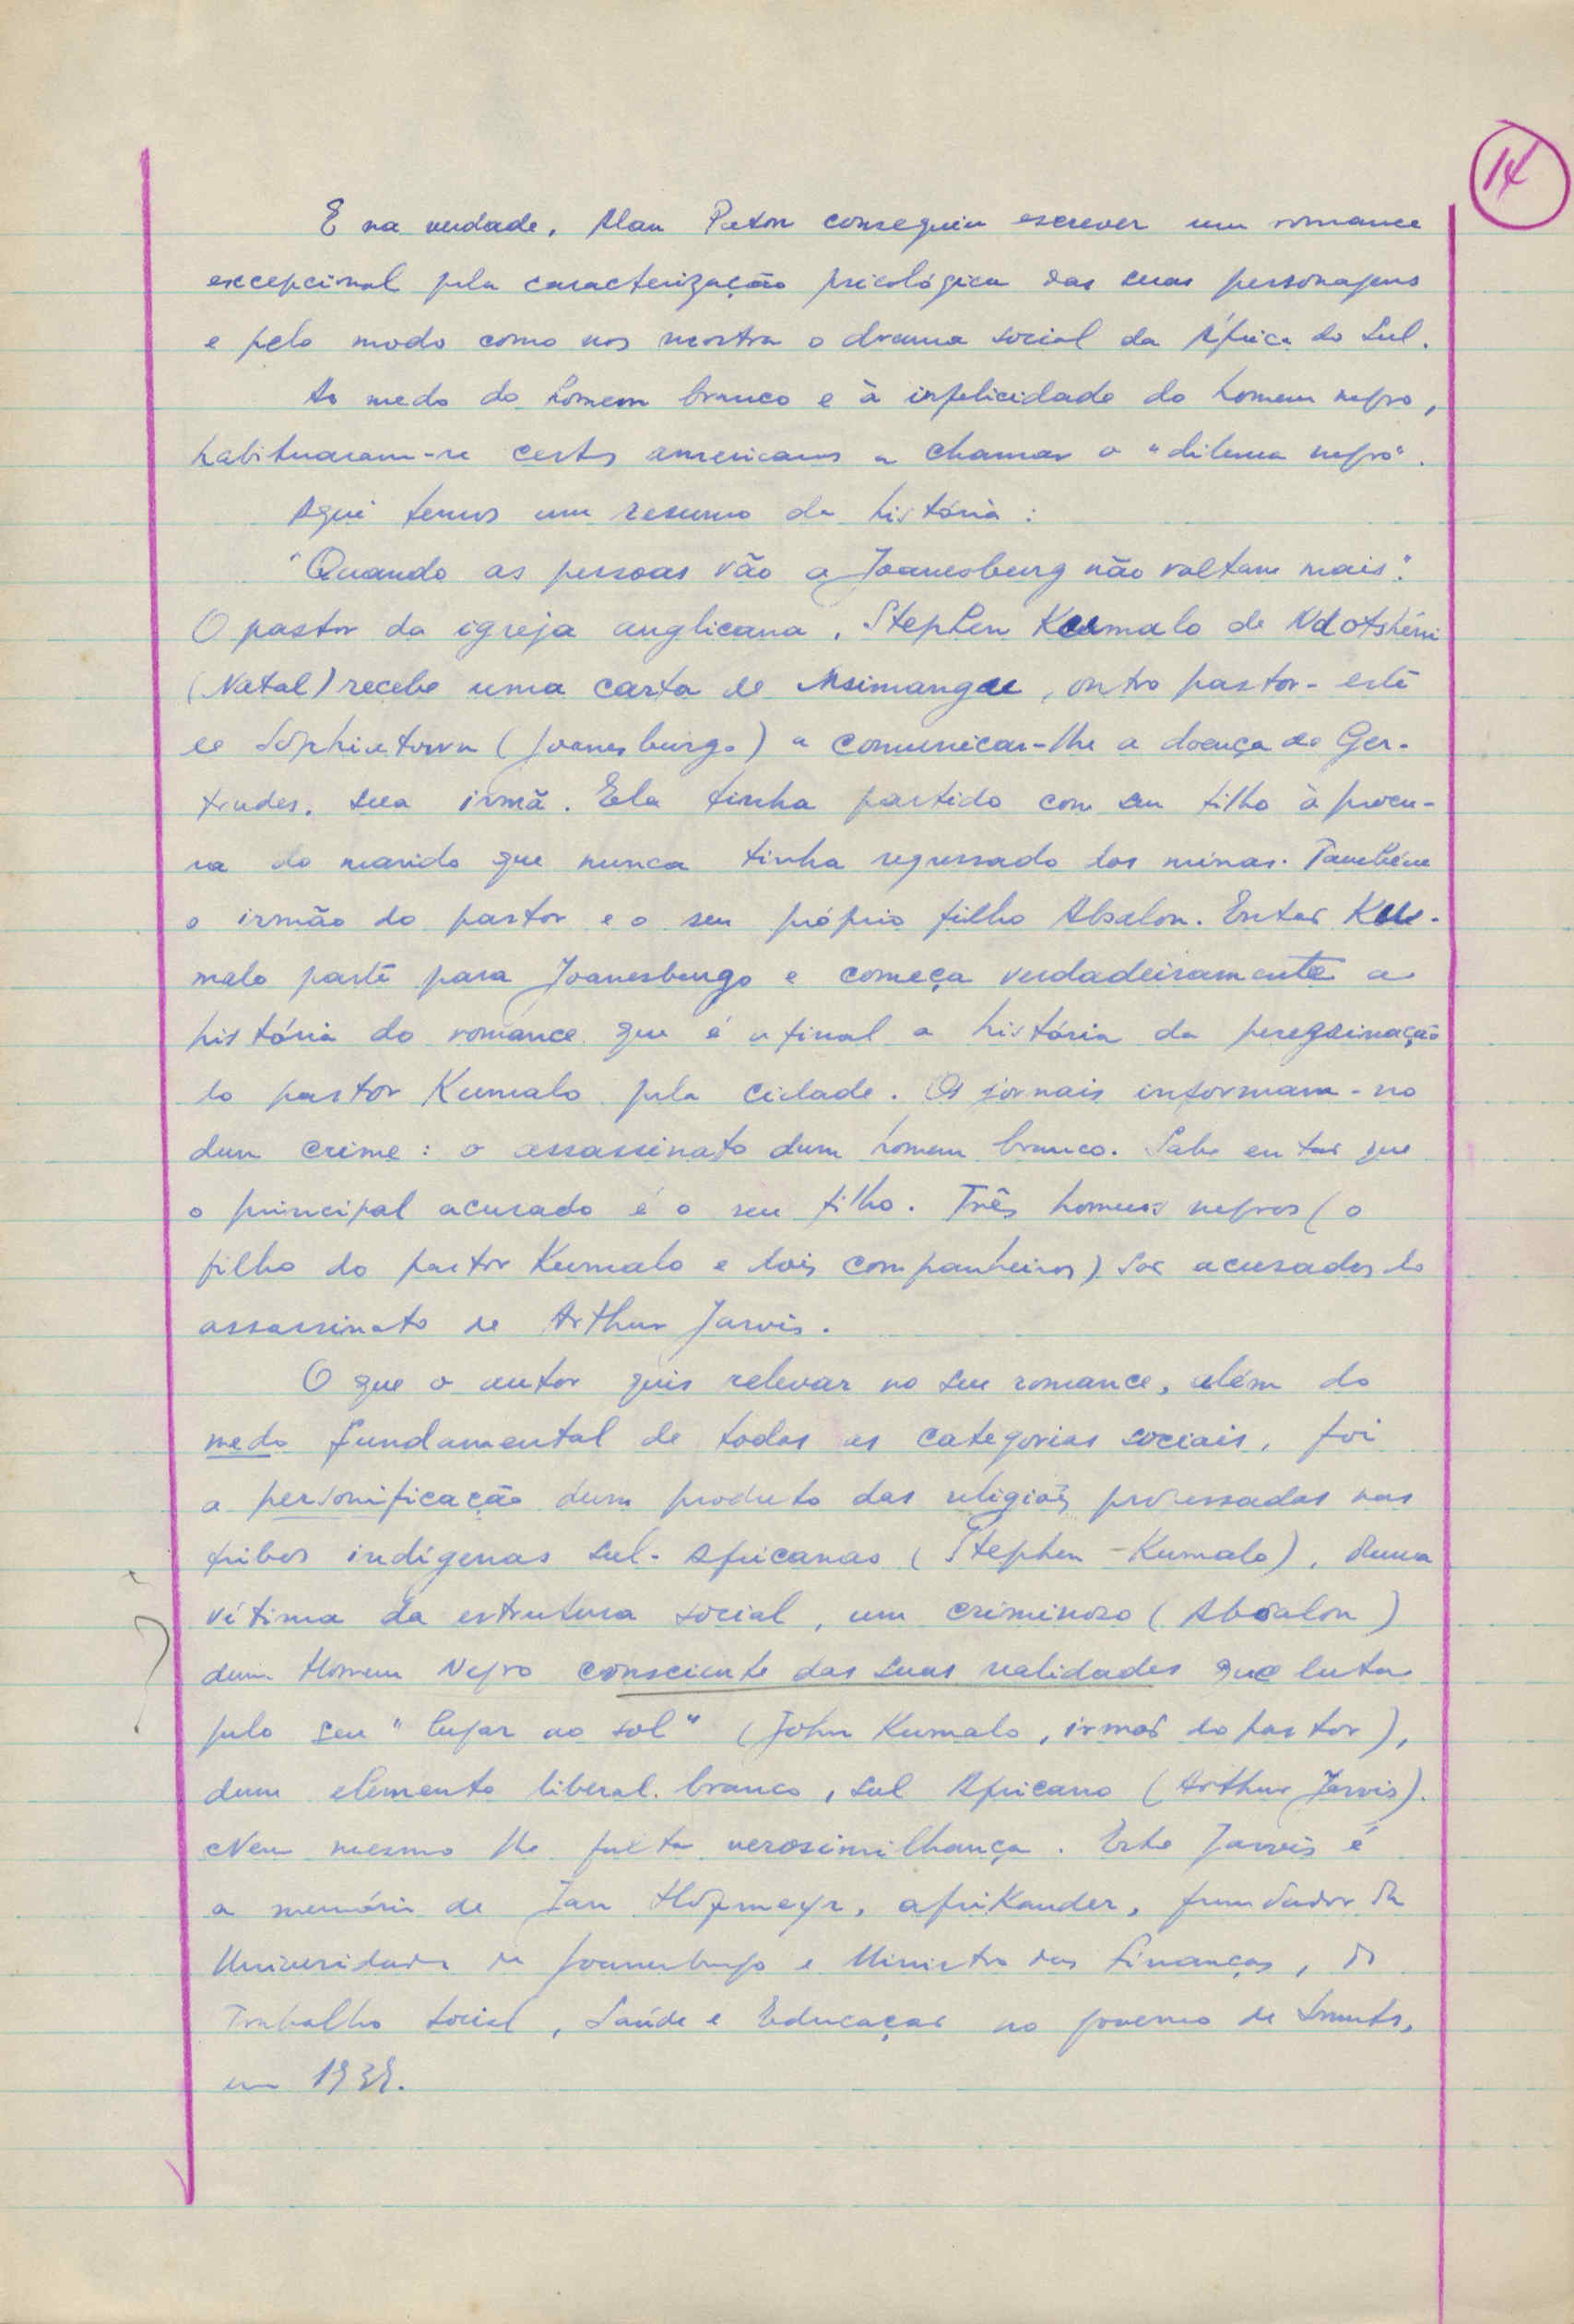 14
E na verdade, Alan Paton conseguiu escrever um romance
excepcional pela caracterização psicológica das suas personagens
e pelo modo como nos mostra o drama social da África do Sul.
Ao medo do homem branco e à infelicidade do homem negro,
habituaram-se certos americanos a chamar o "dilema negro".
Aqui temos um resumo da história:
"Quando as pessoas vão a Joanesburg não voltam mais".
O pastor da igreja anglicana, Stephen Kumalo de Ndotshéni
(Natal) recebe uma carta de Msimangu, outro pastor - este
de Sophiatown (Joanesburgo) a comunicar-lhe a doença de Ger-
trudes, sua irmã. Ela tinha partido com seu filho à procu-
ra do marido que nunca tinha regressado das minas. Também
o irmão do pastor e o seu próprio filho Absalon. Então Ku-
malo parte para Joanesburgo e começa verdadeiramente a
história do romance que é afinal a história da peregrinação
do pastor Kumalo pela cidade. Os jornais informam-no
dum crime: o assassinato dum homem branco. Sabe então que
o principal acusado é o seu filho. Três homens negros (o
filho do pastor Kumalo e dois companheiros) são acusados do
assassinato de Arthur Jarvis.
O que o autor quis relevar no seu romance, além do
medo fundamental de todas as categorias sociais, foi
a personificação dum produto das religiões professadas nas
tribos indígenas sul-Africanas (Stephen-Kumalo), duma
vítima da estrutura social, um criminoso (Absalon)
dum Homem Negro consciente das suas realidades que luta
pelo seu "lugar ao sol" (John Kumalo, irmão do pastor),
dum elemento liberal branco, sul Africano (Arthur Jarvis).
Nem mesmo lhe falta verosimilhança. Este Jarvis é
a memória de Jan Hofmeyr, afrikander, fundador da
Universidade de Joanesburgo e Ministro das Finanças, do
Trabalho Social, Saúde e Educação no governo de Smuts,
em